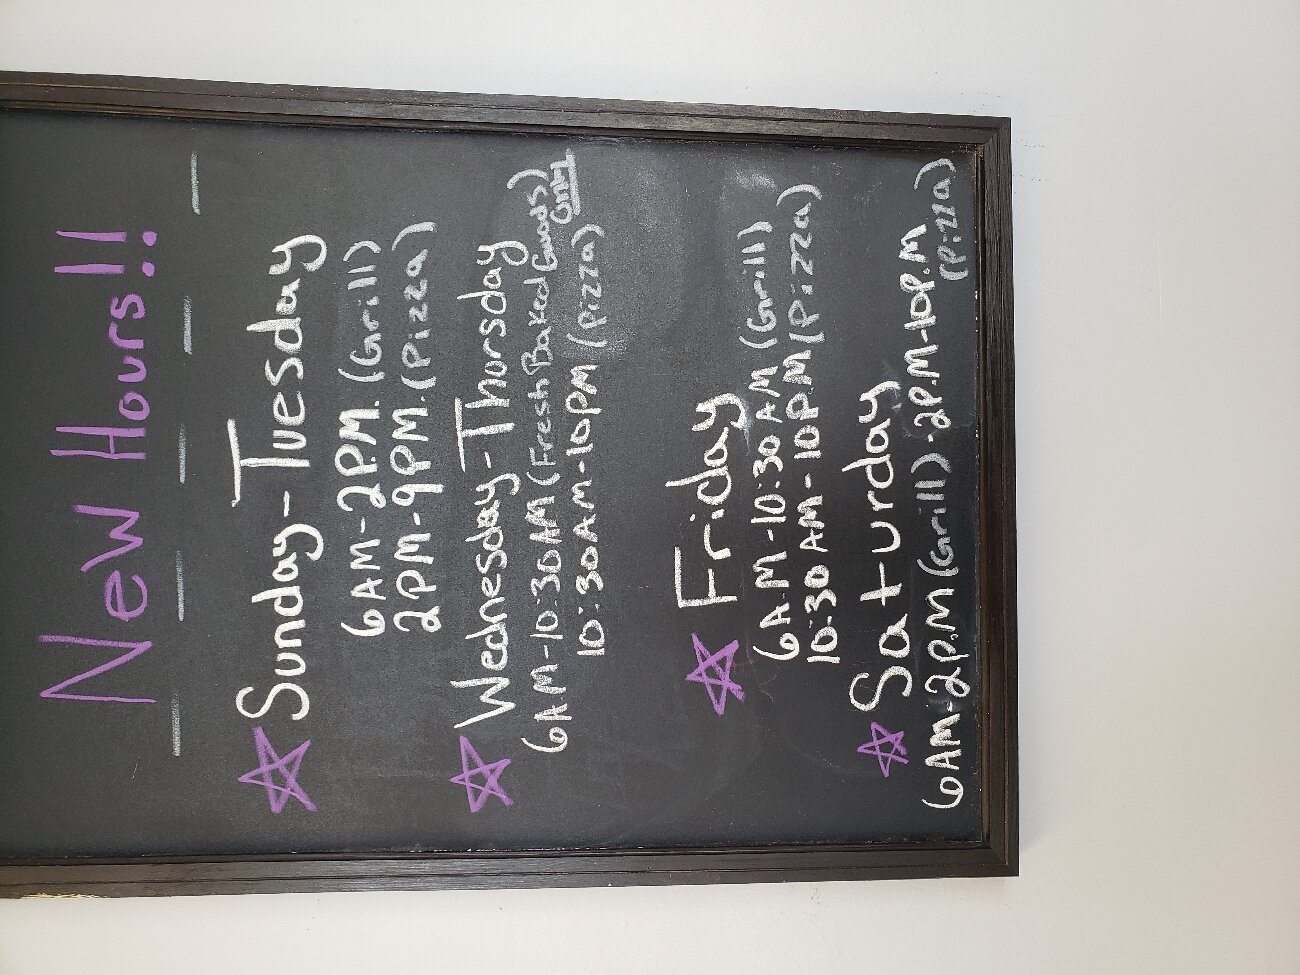 New Hours!!
Sunday-Tuesday
6AM-2P.M. (Grill)
2PM-9PM. (Pizza)
Wednesday-Thursday
6A.M-10:30AM (Fresh Baked Goods) Only
10:30AM-10PM (Pizza)
Friday
6A.M-10:30AM (Grill)
10:30AM-10P.M (Pizza)
Saturday
6AM-2P.M (Grill) • 2P.M-10P.M
(Pizza)